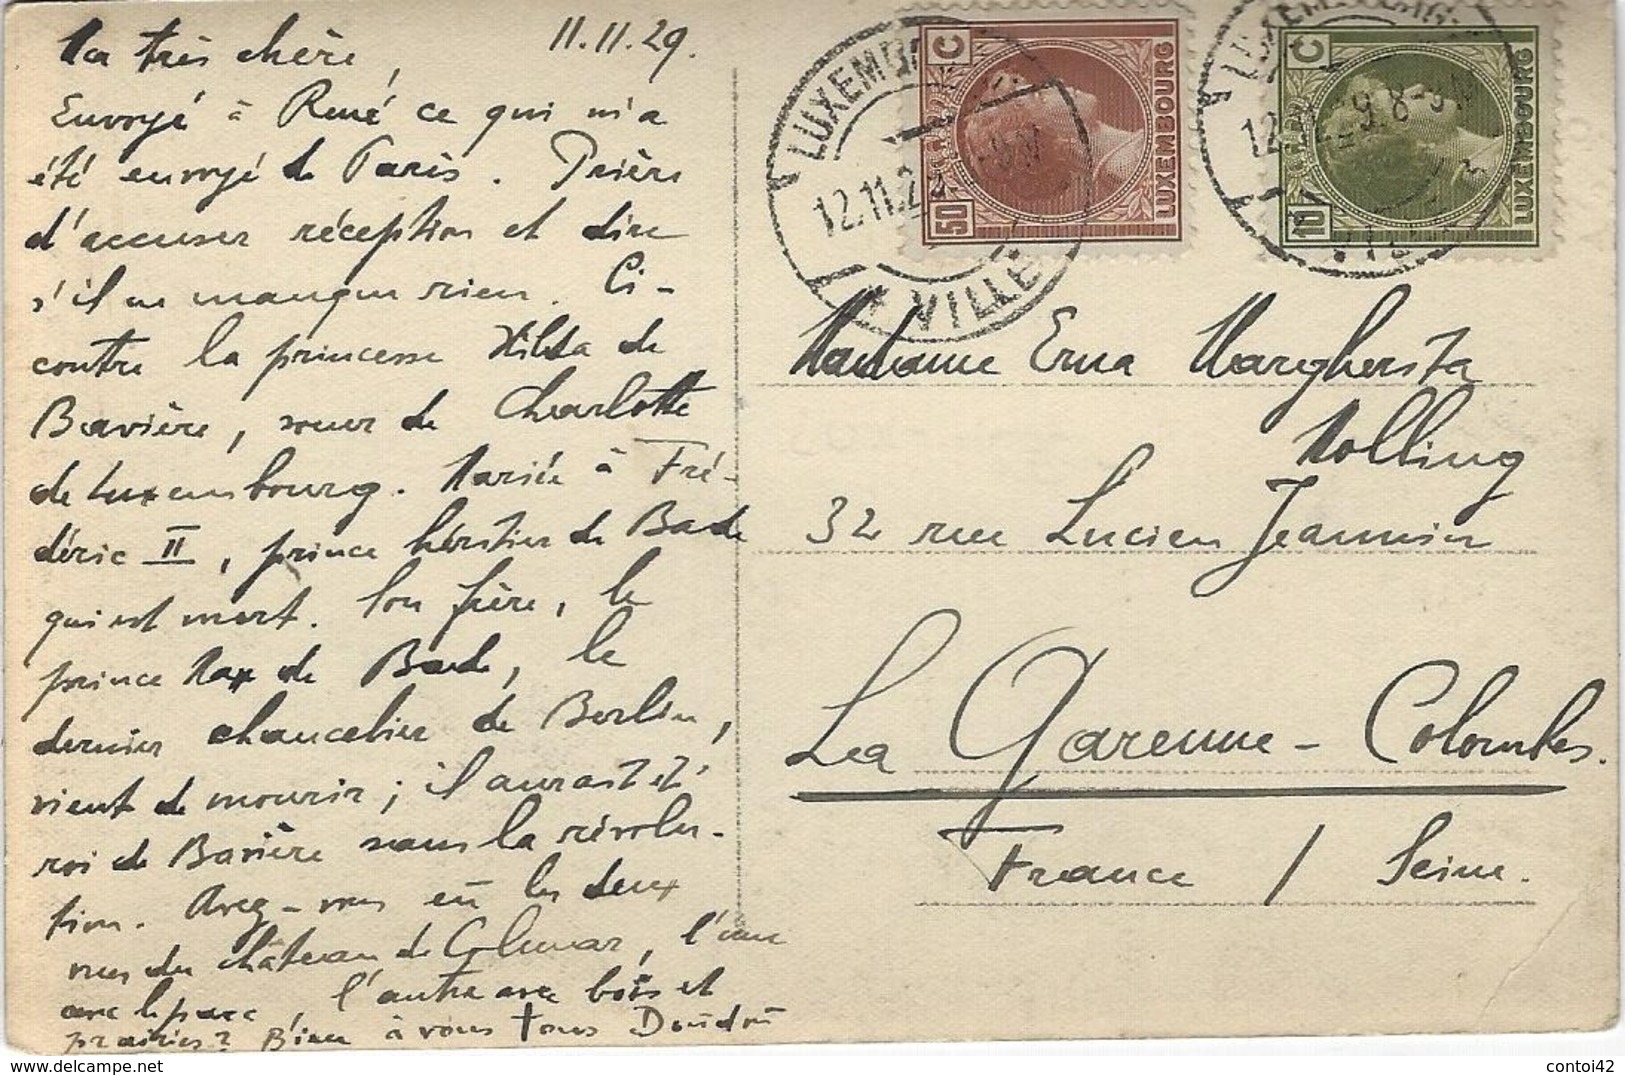 Ma très chère, 11.11.29.
Envoyé à René ce qui m'a
été envoyé de Paris. Prière
d'accuser réception et dire
s'il ne manque rien. Ci-
contre la princesse Hilda de
Bavière, sœur de Charlotte
de Luxembourg. Mariée à Fré-
déric II, prince héritier de Bade
qui est mort. Son frère, le
prince Max de Bade, le
dernier chancelier de Berlin,
vient de mourir; il aurait été
roi de Bavière sans la révolu-
tion. Avez-vous eu les deux
vues du château de Colmar, l'une
avec le parc, l'autre avec bois et
prairies? Bien à vous tous Doudou
LUXEMBOURG
VILLE
12.11.2
50 C
LUXEMBOURG
LUXEMBOURG
12.11.29.8-9
10 C
LUXEMBOURG
Madame Erna Margherita
Nolling
32 rue Lucien Jeannin
La Garenne-Colombes.
France / Seine.
contoi42